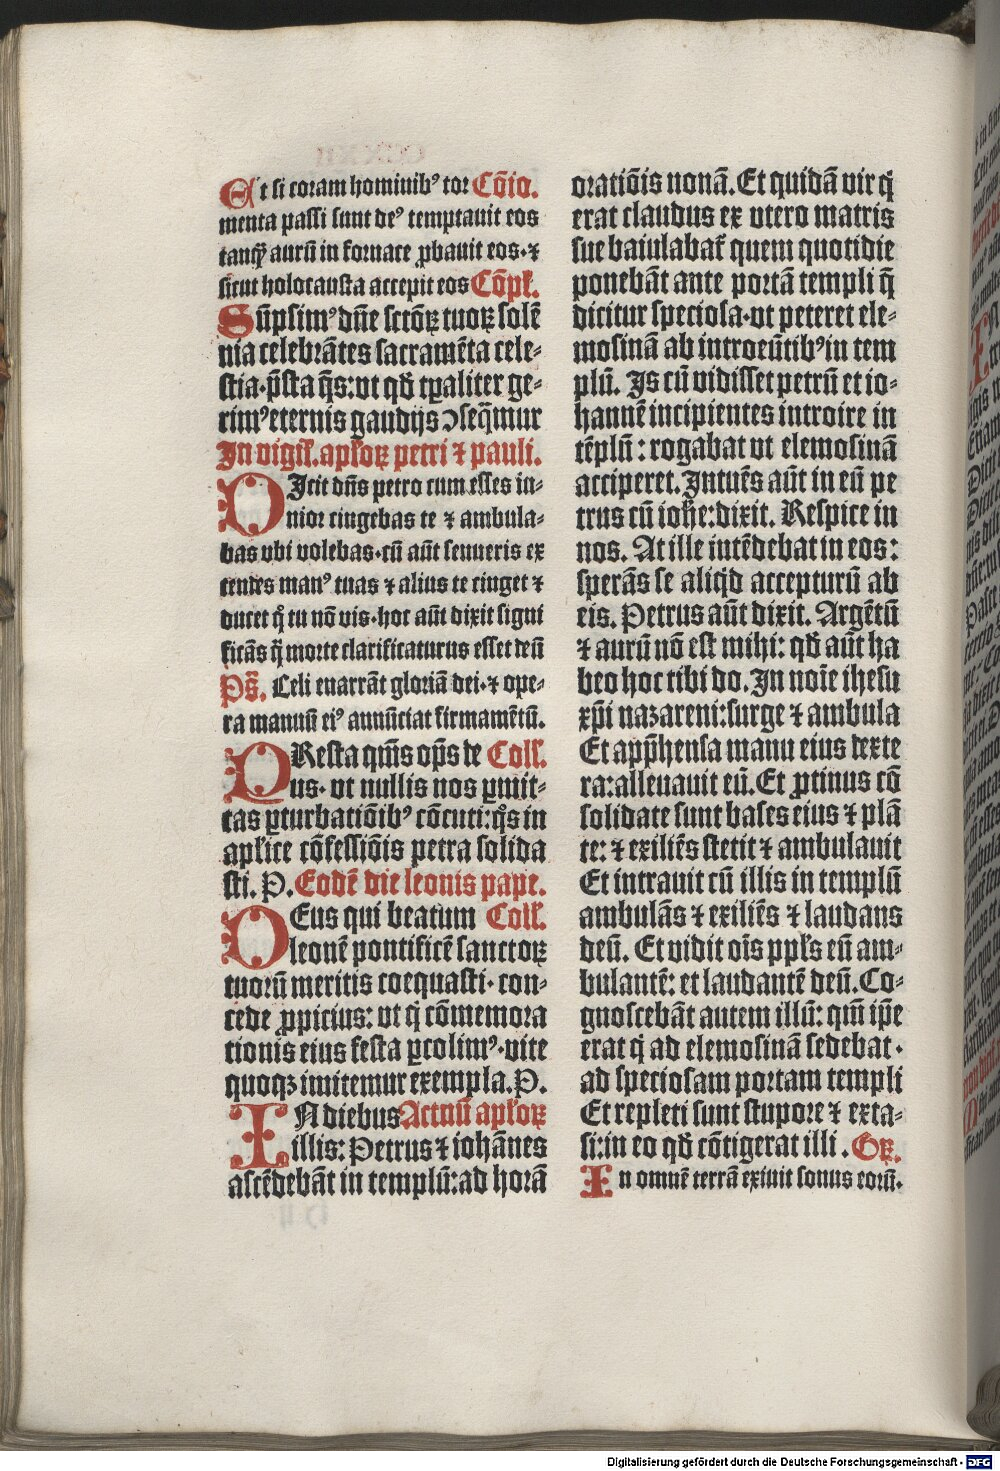 Et si coram hominibꝰ tor Cō̄io.
menta passi sunt deꝰ temptauit eos
tanqͣ̄ aurū in fornace ꝓbauit eos·⁊
sicut holocausta accepit eos Cōpl̄.
Sūpsimꝰ dn̄e sctōꝝ tuoꝝ solē
nia celebrātes sacramēta cele⸗
stia·p̄sta q̄s:vt qd̄ tp̄aliter ge⸗
rimꝰ eternis gaudijs ↄseq̄mur
In vigil̄.apl̄oꝝ petri ⁊ pauli.
DIcit dn̄s petro cum esses iu⸗
nior cingebas te ⁊ ambula⸗
bas vbi volebas·cū aūt senueris ex
tendes manꝰ tuas ⁊ alius te cinget ⁊
ducet qͦ tu nō vis·hoc aūt dixit signi
ficās q̄ morte clarificaturus esset deū
Ps̄. Celi enarrāt gloriā dei·⁊ ope⸗
ra manuū eiꝰ annūciat firmamētū.
PResta qm̄s op̄s de Coll̄.
us·vt nullis nos ꝑmit⸗
tas ꝑturbatiōibꝰ cōcuti:qͦs in
apl̄ice cōfessiōis petra solida
sti. P. Eodē die leonis pape.
DEus qui beatum Coll̄.
leonē pontificē sanctoꝝ
tuorū meritis coequasti·con⸗
cede ꝓpicius:vt qͥ cōmemora
tionis eius festa ꝑcolimꝰ·vite
quoqꝫ imitemur exempla.P.
IN diebus Actuū apl̄oꝝ
illis:Petrus ⁊ iohānes
ascēdebāt in templū:ad horā
oratiōis nonā.Et quidā vir qͥ
erat claudus ex vtero matris
sue baiulabat᷑ quem quotidie
ponebāt ante portā templi q̄
dicitur speciosa·vt peteret ele⸗
mosinā ab introeūtibꝰ in tem
plū. Is cū vidisset petrū et io⸗
hannē incipientes introire in
tēplū: rogabat vt elemosinā
acciperet. Intuēs aūt in eū pe
trus cū ioh̄e:dixit. Respice in
nos. At ille intēdebat in eos:
sperās se aliqͥd accepturū ab
eis. Petrus aūt dixit. Argētū
⁊ aurū nō est mihi: qd̄ aūt ha
beo hoc tibi do. In noīe ihesu
xp̄i nazareni:surge ⁊ ambula
Et app̄hensa manu eius dexte
ra:alleuauit eū.Et ꝓtinus cō
solidate sunt bases eius ⁊ plā
te:⁊ exiliēs stetit ⁊ ambulauit
Et intrauit cū illis in templū
ambulās ⁊ exiliēs ⁊ laudans
deū. Et vidit oīs ppl̄s eū am⸗
bulantē: et laudantē deū.Co⸗
gnoscebāt autem illū: qm̄ ip̄e
erat qͥ ad elemosinā sedebat·
ad speciosam portam templi
Et repleti sunt stupore ⁊ exta⸗
si:in eo qd̄ cōtigerat illi. Gꝝ.
In omnē terrā exiuit sonus eorū.
Digitalisierung gefördert durch die Deutsche Forschungsgemeinschaft - DFG